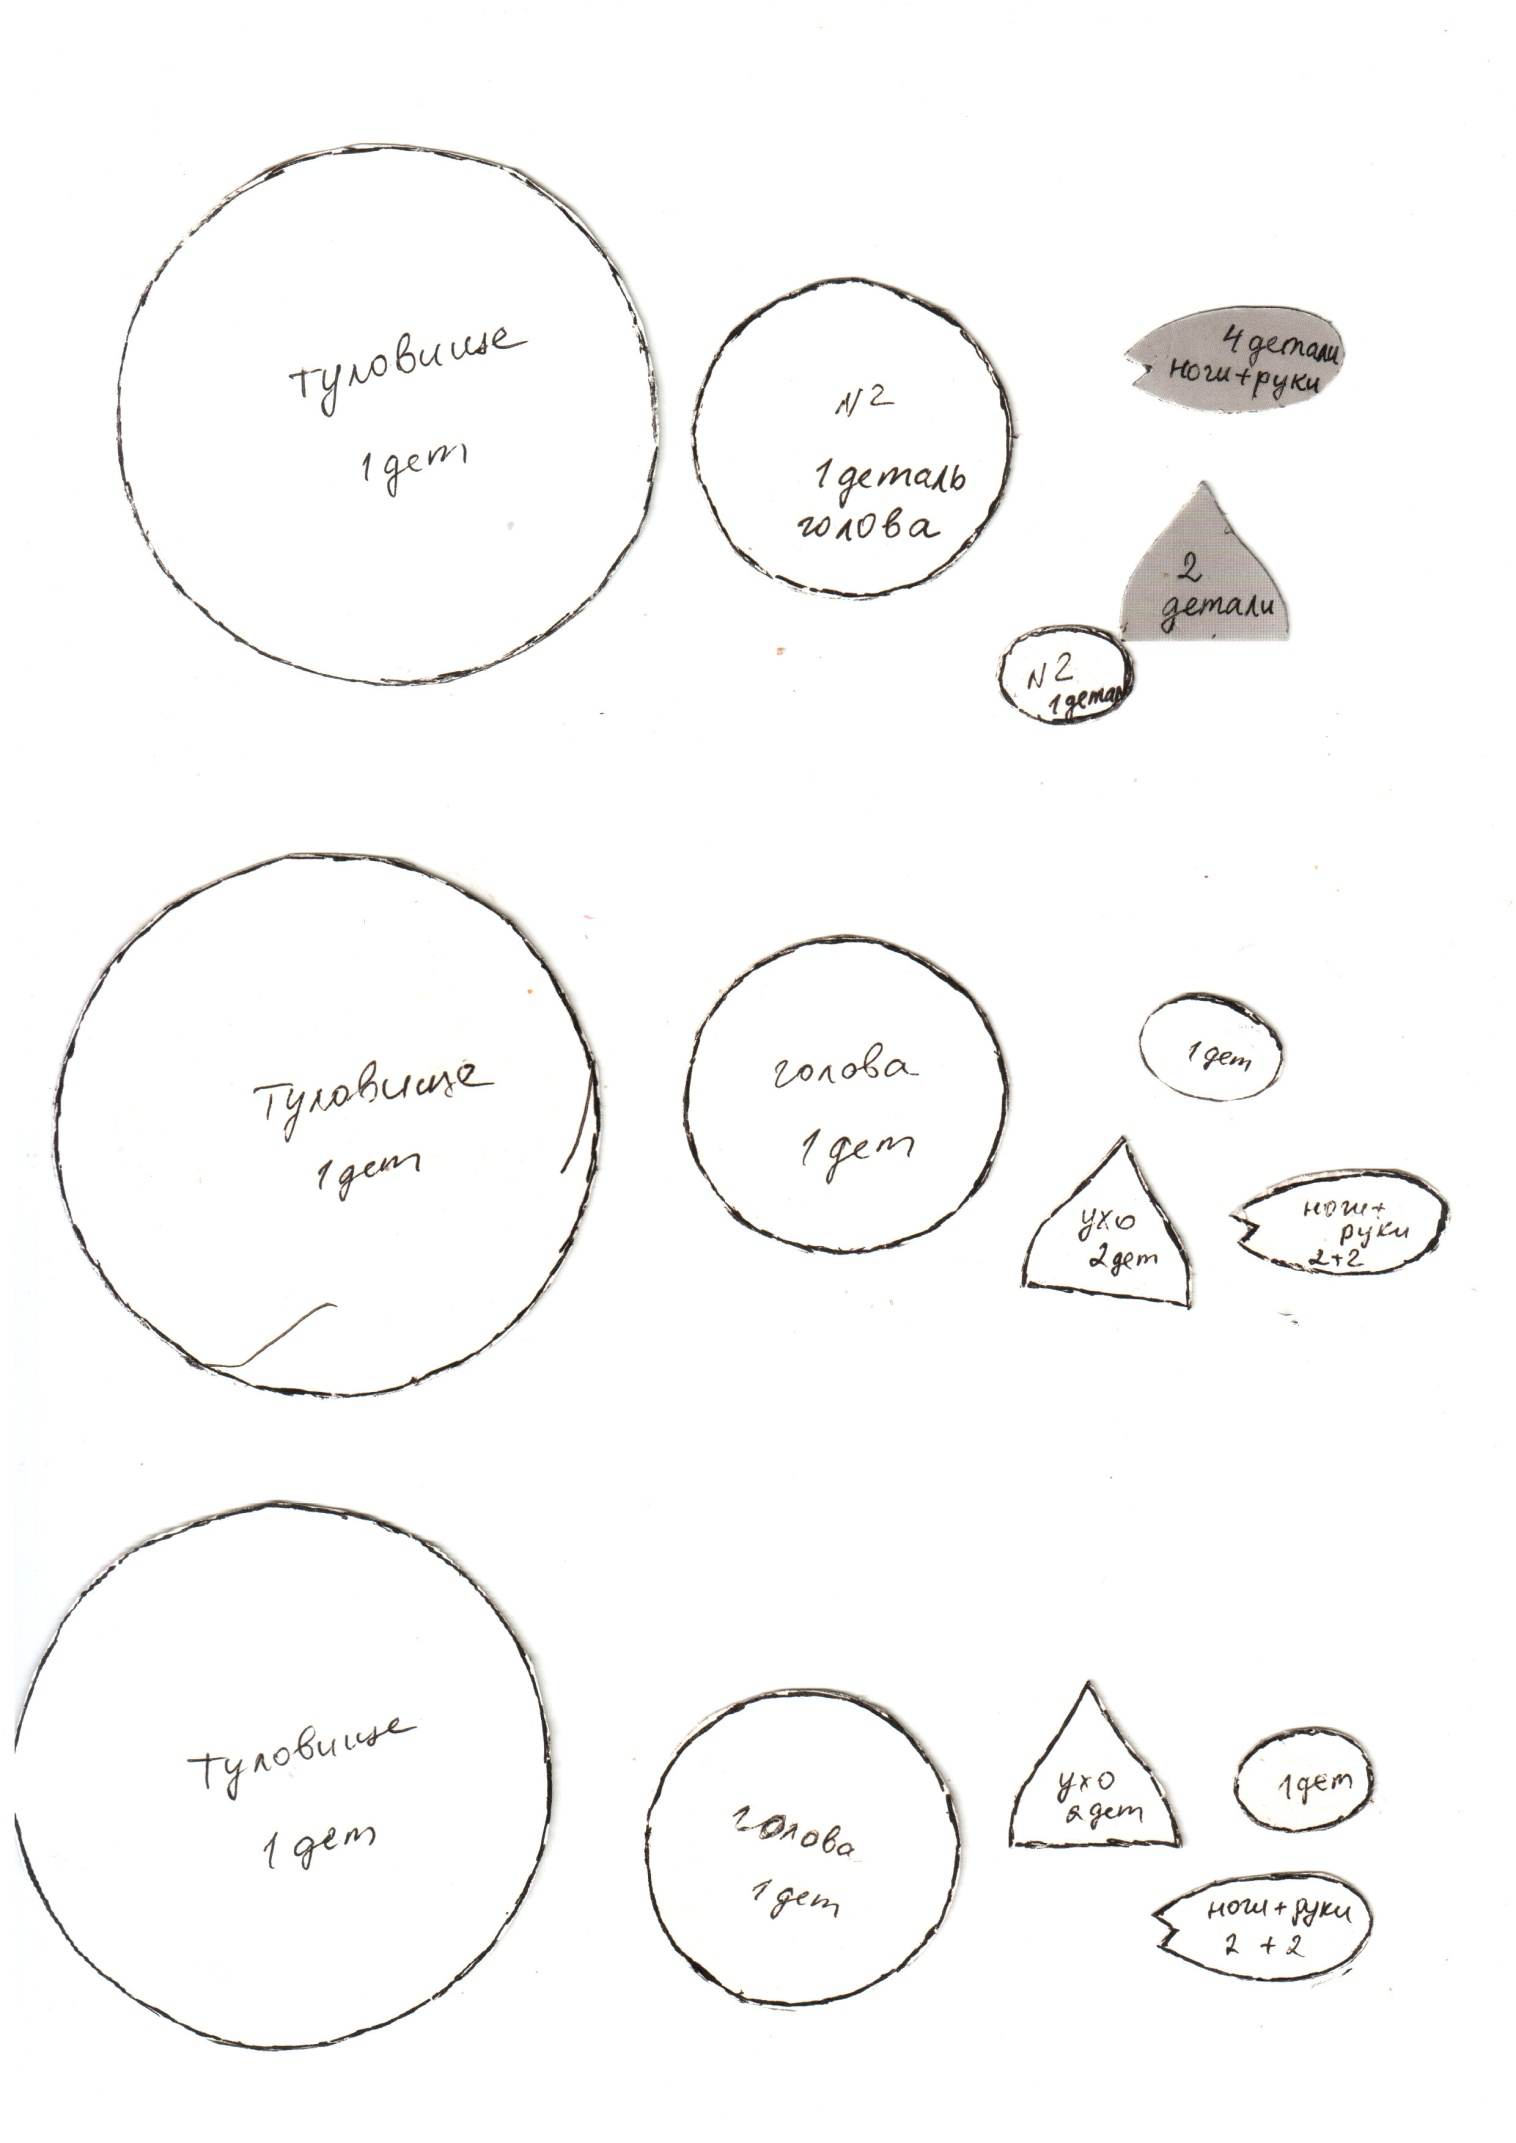 туловище
1 дет
N2
1 деталь
голова
4 детали
ноги+руки
2
детали
N2
1 детал
Туловище
1 дет
голова
1 дет
1 дет
ухо
2 дет
ноги+
руки
2+2
Туловище
1 дет
голова
1 дет
ухо
2 дет
1 дет
ноги+руки
2 + 2